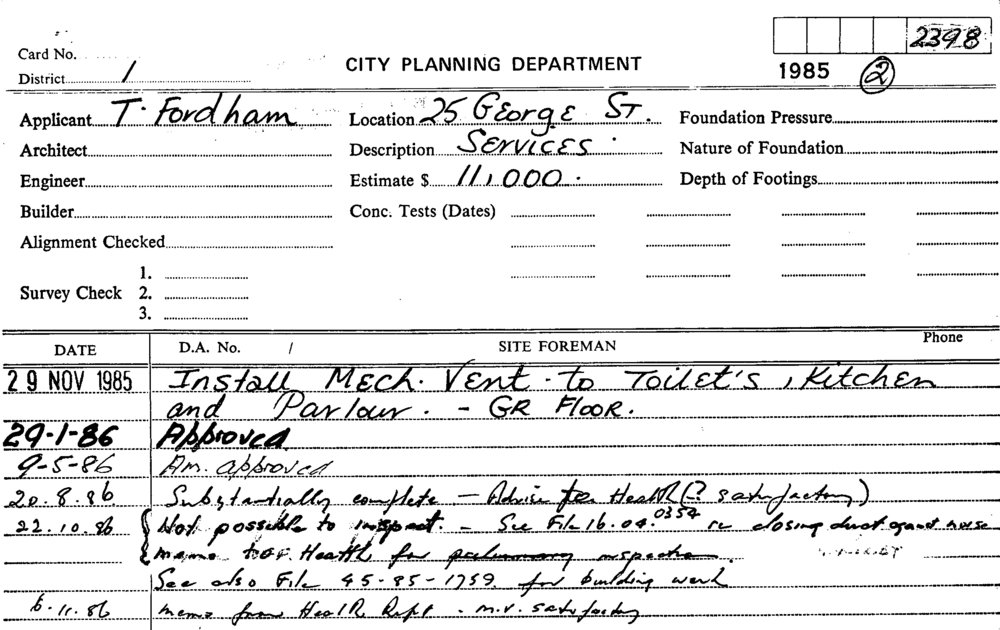 2398
Card No.
District 1
CITY PLANNING DEPARTMENT
1985 2
Applicant T. Fordham Location 25 George St. Foundation Pressure
Architect Description Services. Nature of Foundation
Engineer Estimate $ 11,000. Depth of Footings
Builder Conc. Tests (Dates)
Alignment Checked
1.
Survey Check 2.
3.
DATE D.A. No. / SITE FOREMAN Phone
29 NOV 1985 Install Mech. Vent. to Toilet's, Kitchen
and Parlour. - GR Floor.
29-1-86 Approved
9-5-86 Am. approved
20.8.86 Substantially complete - Advise Health (? satisfactory)
22.10.86 Not possible to inspect. - See File 16.04.0354 re closing duct against noise
memo Health for inspection
See also File 45-85-1759 for building work
6.11.86 memo from Health Dept - m.v. satisfactory